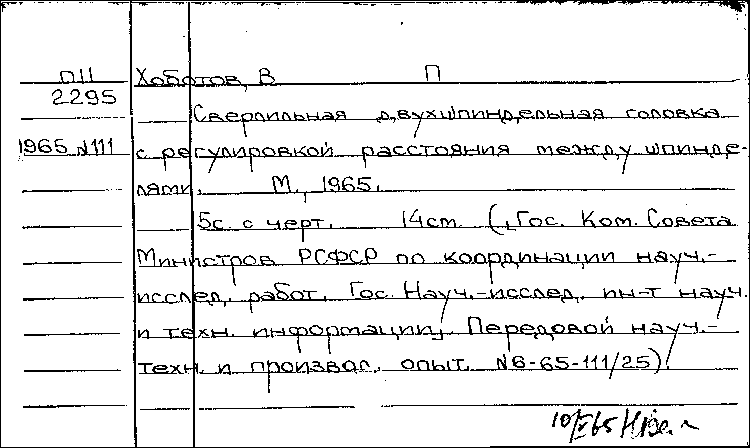 П11 Хоботов, В П
2295
Сверлильная двухшпиндельная головка
1965 №111 с регулировкой расстояния между шпинде-
лями. М., 1965.
5с. с черт. 14см. (Гос. Ком. Совета
Министров РСФСР по координации науч.-
исслед. работ. Гос. Науч.-исслед. ин-т науч.
и техн. информации. Передовой науч.-
техн. и произвол. опыт. №6-65-111/25).